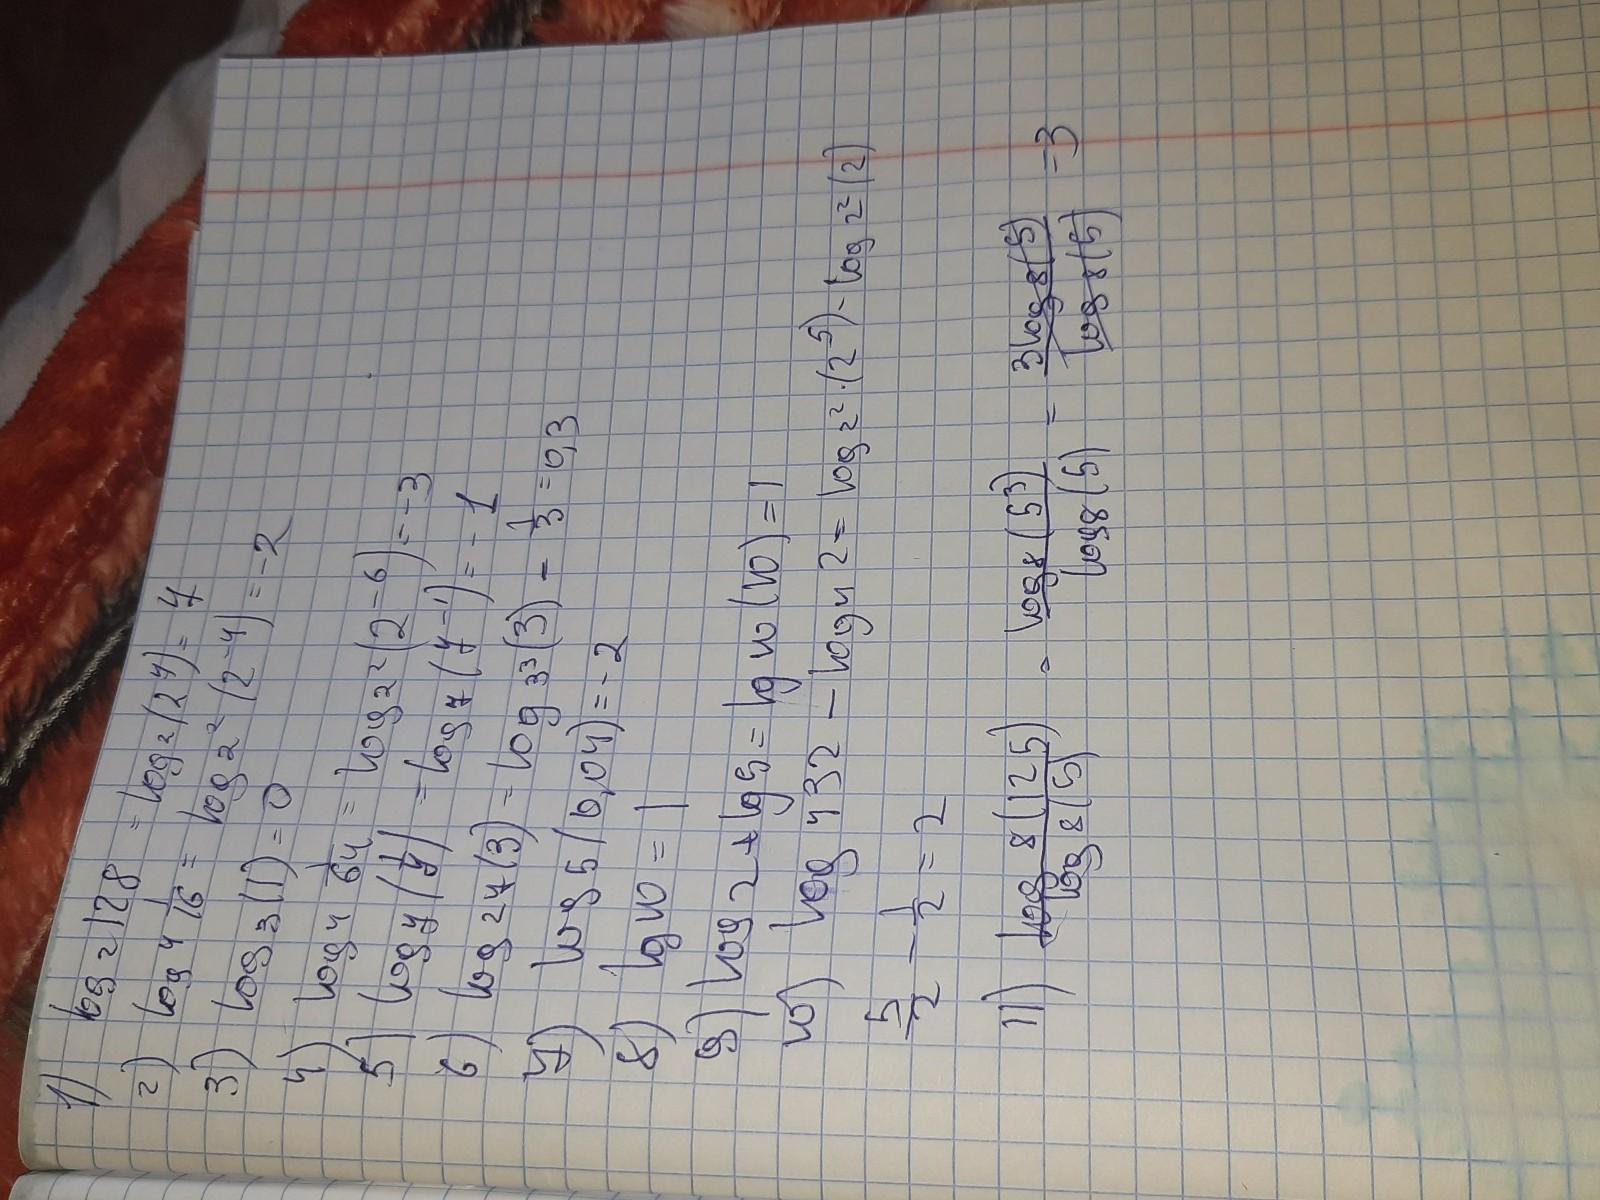 1) log 2 128 = log 2 (2⁷) = 7
2) log 4 1/16 = log 2² (2⁻⁴) = -2
3) log 3 (1) = 0
4) log 4 1/64 = log 2² (2⁻⁶) = -3
5) log 7 (1/7) = log 7 (7⁻¹) = -1
6) log 27 (3) = log 3³ (3) = 1/3 = 0,3
7) log 5 (0,04) = -2
8) lg 10 = 1
9) log 2 + log 5 = lg 10 (10) = 1
10) log 4 32 - log 4 2 = log 2² · (2⁵) - log 2² (2)
5/2 - 1/2 = 2
11) log 8 (125) / log 8 (5) = log 8 (5³) / log 8 (5) = 3 log 8 (5) / log 8 (5) = 3